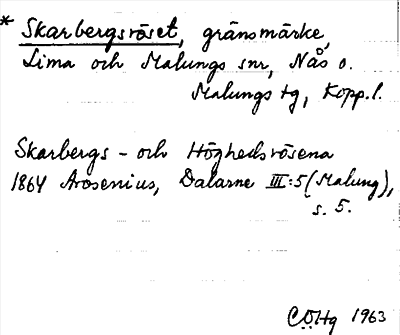 * Skarbergsröset, gränsmärke,
Lima och Malungs snr, Nås o.
Malungs tg, Kopp.l.
Skarbergs- och Höghedsrösena
1864 Arosenius, Dalarne III:5 (Malung),
s. 5.
CÖHg 1963